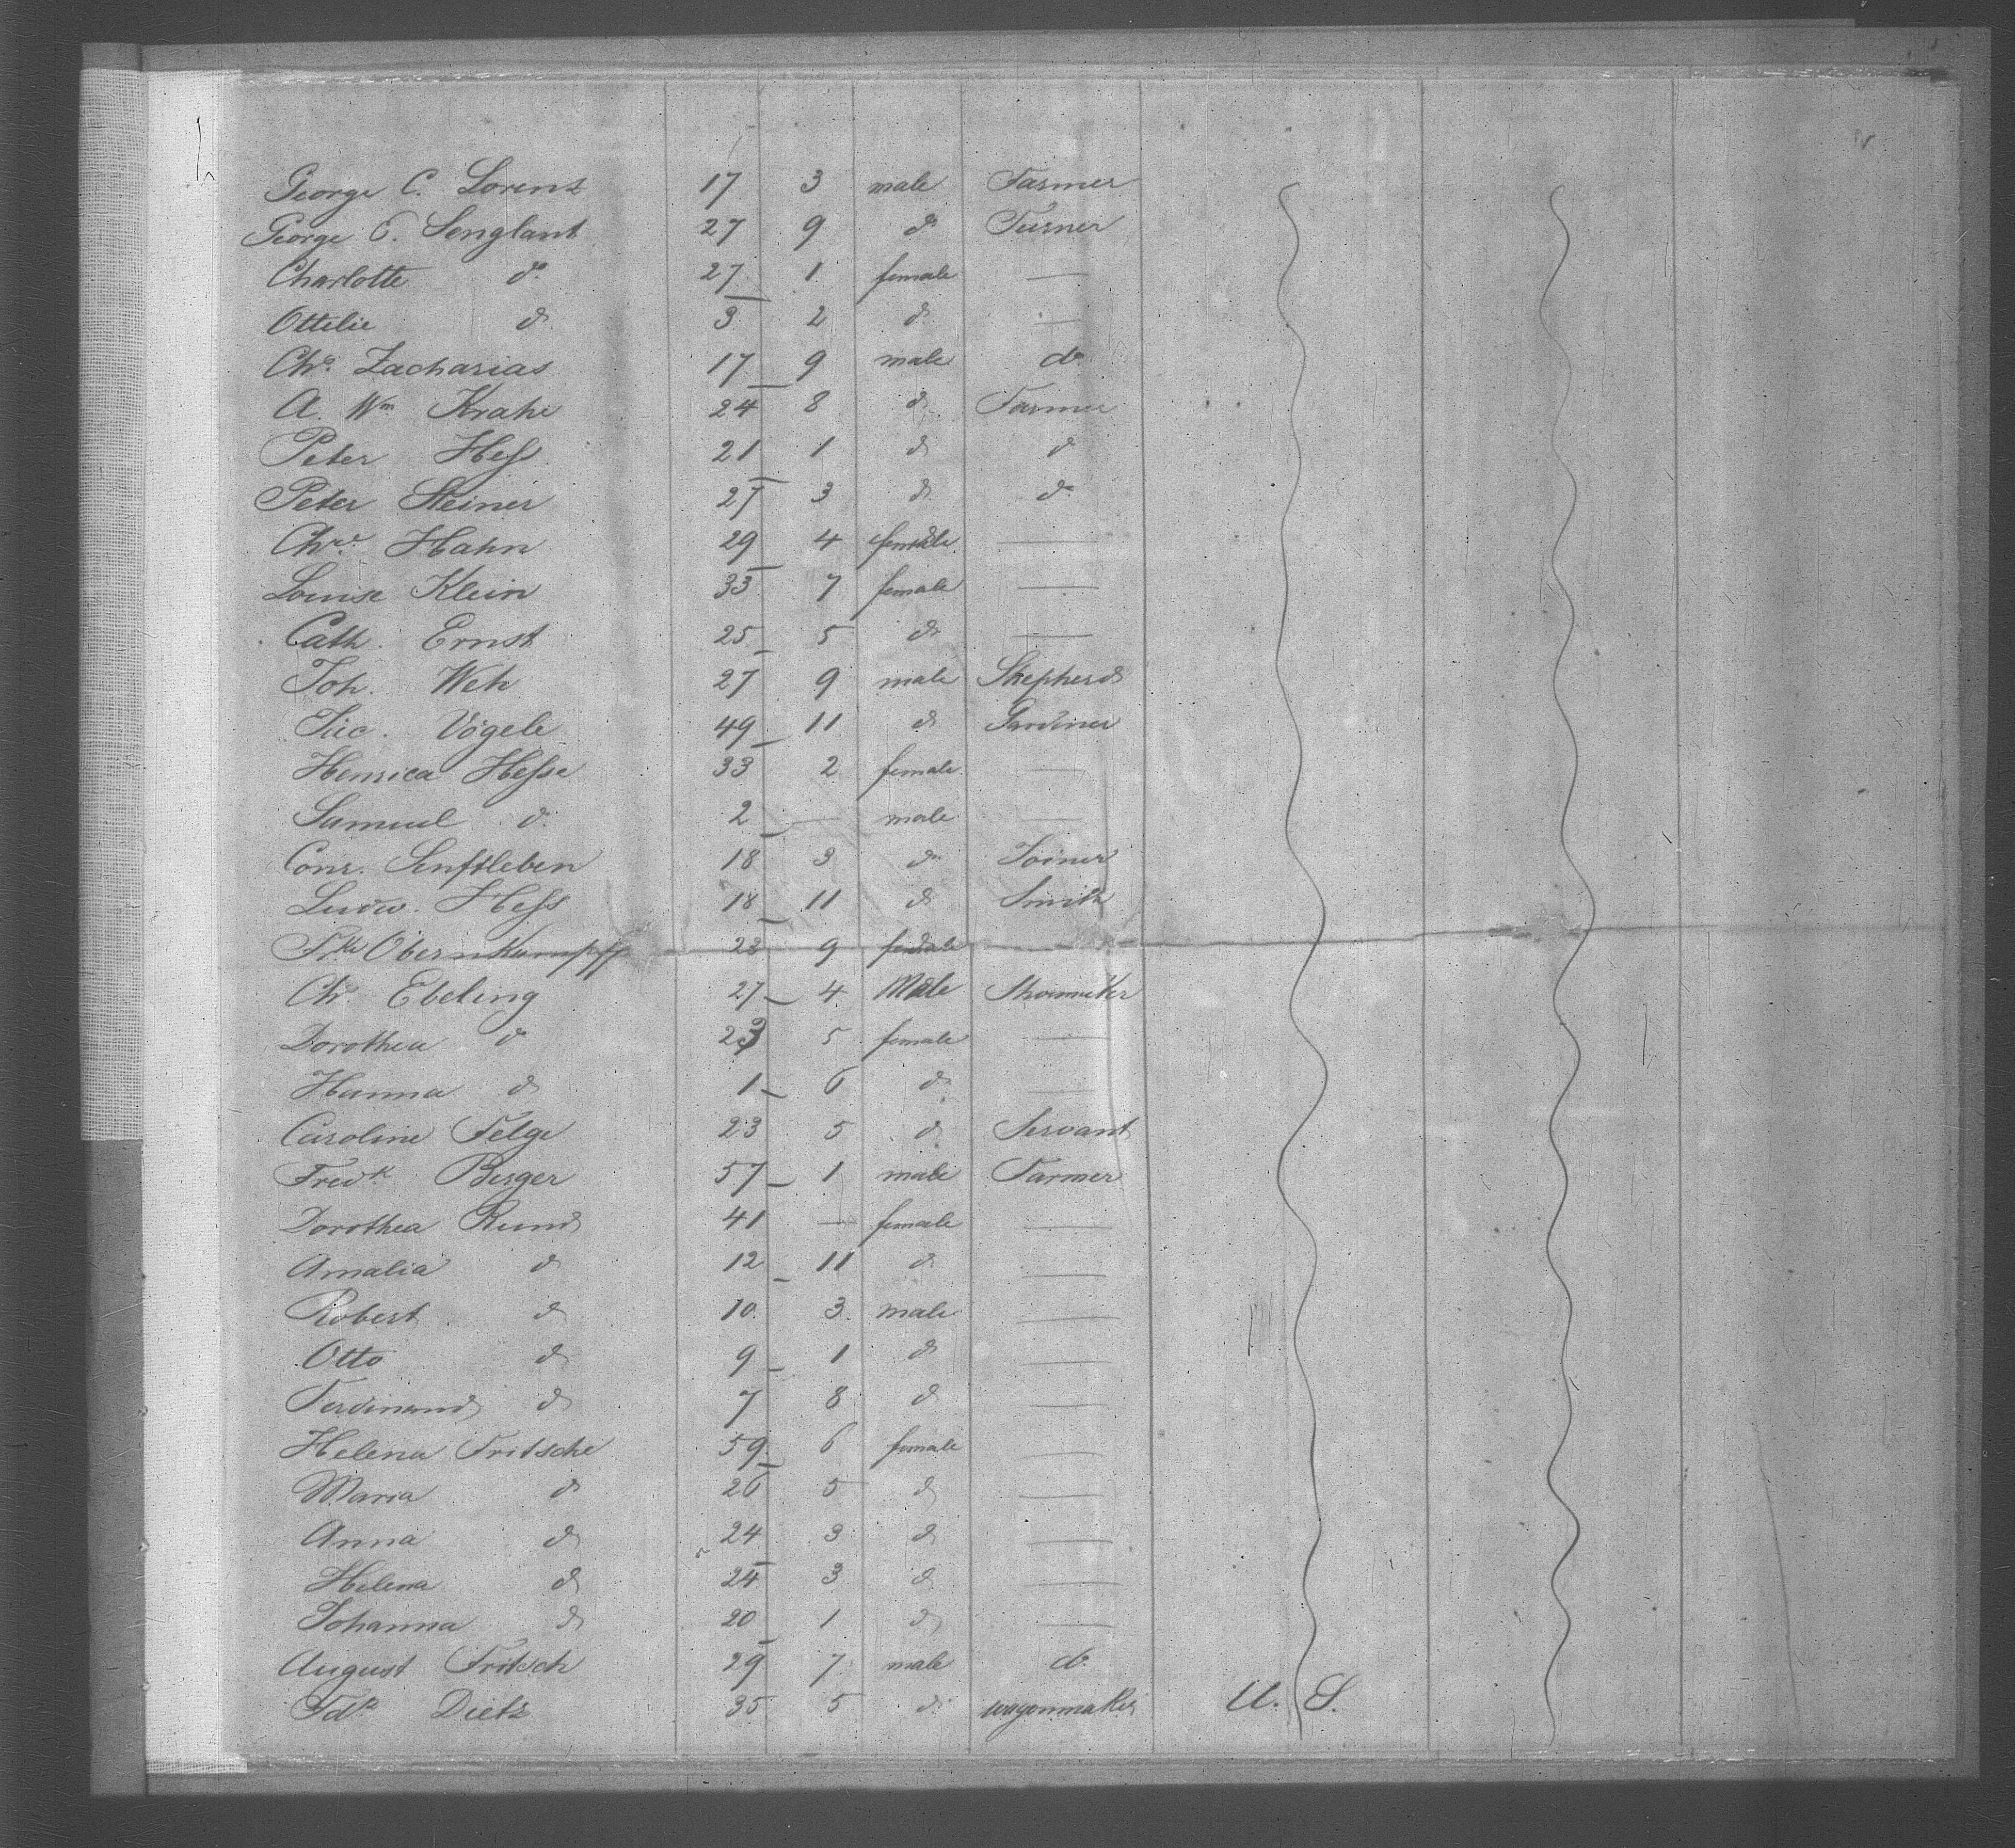 George C. Lorenz 17 3 male Farmer
George C. Senglant 27 9 do Turner
Charlotte do 27 1 female —
Ottilie do 3 2 do —
Chr. Zacharias 17 9 male do
A. Wm Krahe 24 8 do Farmer
Peter Hess 21 1 do do
Peter Steiner 27 3 do do
Chre. Hahn 29 4 female —
Louise Klein 33 7 female —
Cath. Ernst 25 5 do —
Joh. Weh 27 9 male Shepherd
Luc. Vögele 49 11 do Gardiner
Henrica Hesse 33 2 female —
Samuel do 2 — male —
Conr. Senftleben 18 3 do Joiner
Ludw. Hess 18 11 do Smith
Fr. Obernkampff 23 9 female
Chr. Ebeling 27 4 Male Shoemaker
Dorothea do 23 5 female —
Hanna do 1 6 do —
Caroline Felge 23 5 do Servant
Fredk Berger 57 1 male Farmer
Dorothea Rund 41 — female —
Amalia do 12 11 do —
Robert do 10 3 male —
Otto do 9 1 do —
Ferdinand do 7 8 do —
Helena Fritsche 59 6 female —
Maria do 26 5 do —
Anna do 24 3 do —
Helena do 24 3 do —
Johanna do 20 1 do —
August Fritsch 29 7 male do
Fdk Dietz 35 5 do wagonmaker U. S.